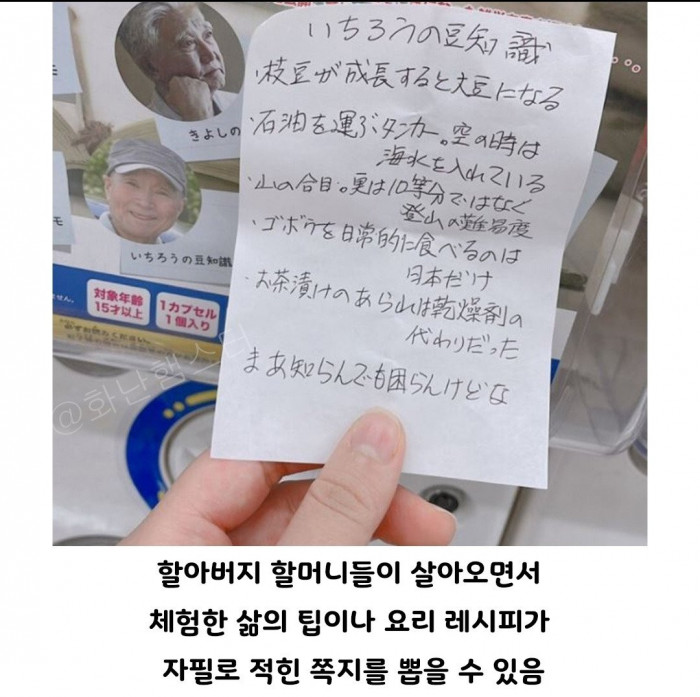 いちろうの豆知識
・枝豆が成長すると大豆になる
・石油を運ぶタンカー。空の時は
海水を入れている
・山の合目。実は10等分ではなく
登山の難易度
・ゴボウを日常的に食べるのは
日本だけ
・お茶漬けのあられは乾燥剤の
代わりだった
まあ知らんでも困らんけどな
きよしの
モ
いちろうの豆知識
モ
せん。
対象年齢
15才以上
1カプセル
1個入り
@화난햄스터
할아버지 할머니들이 살아오면서
체험한 삶의 팁이나 요리 레시피가
자필로 적힌 쪽지를 뽑을 수 있음